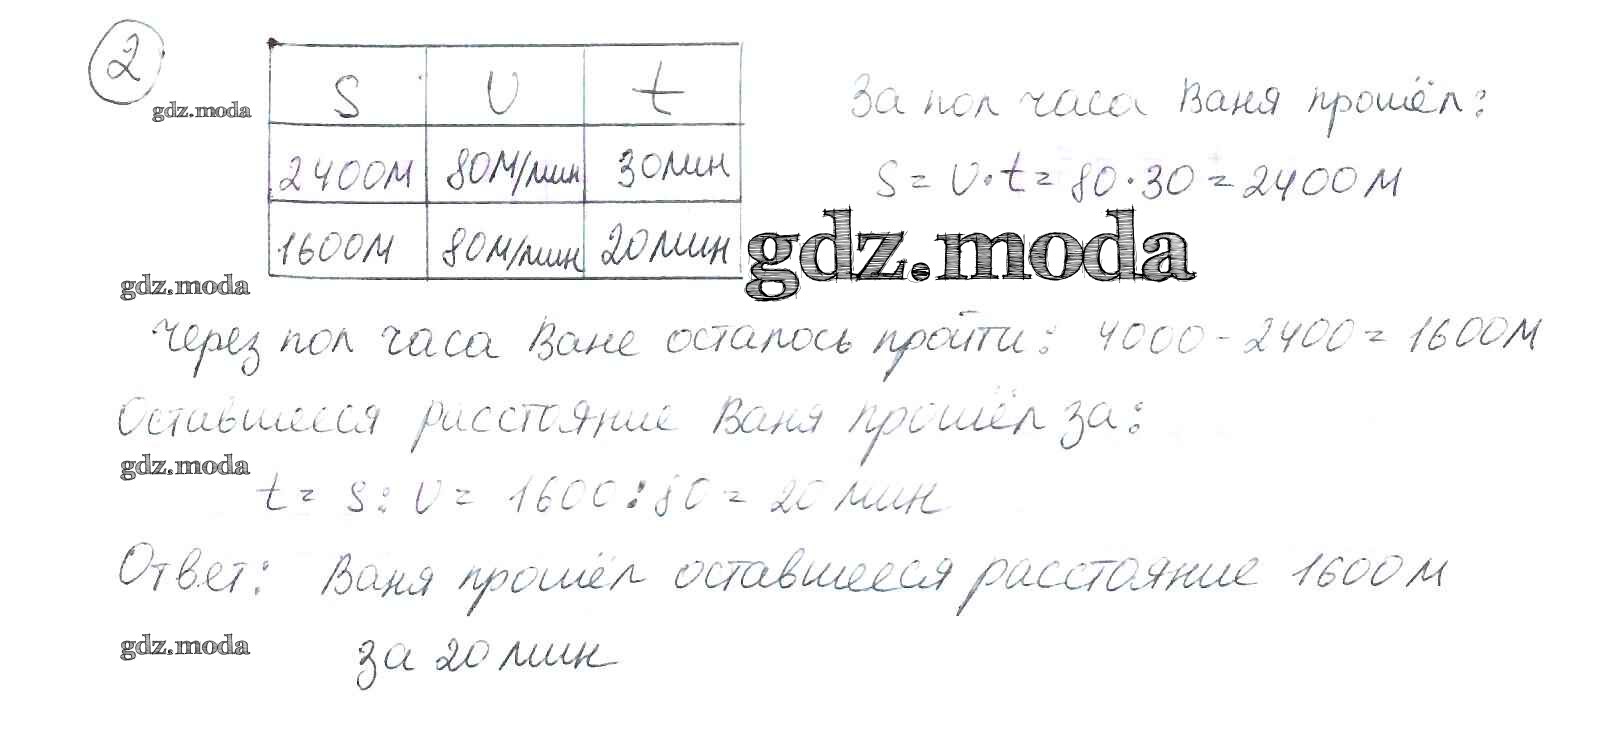 2
gdz.moda
S υ t
2400м 80м/мин 30мин
1600м 80м/мин 20мин
За пол часа Ваня прошёл:
S = υ·t = 80·30 = 2400м
gdz.moda
gdz.moda
Через пол часа Ване осталось пройти: 4000-2400=1600м
Оставшееся расстояние Ваня прошёл за:
gdz.moda
t = S:υ = 1600:80 = 20мин
Ответ: Ваня прошёл оставшееся расстояние 1600м
gdz.moda
за 20мин